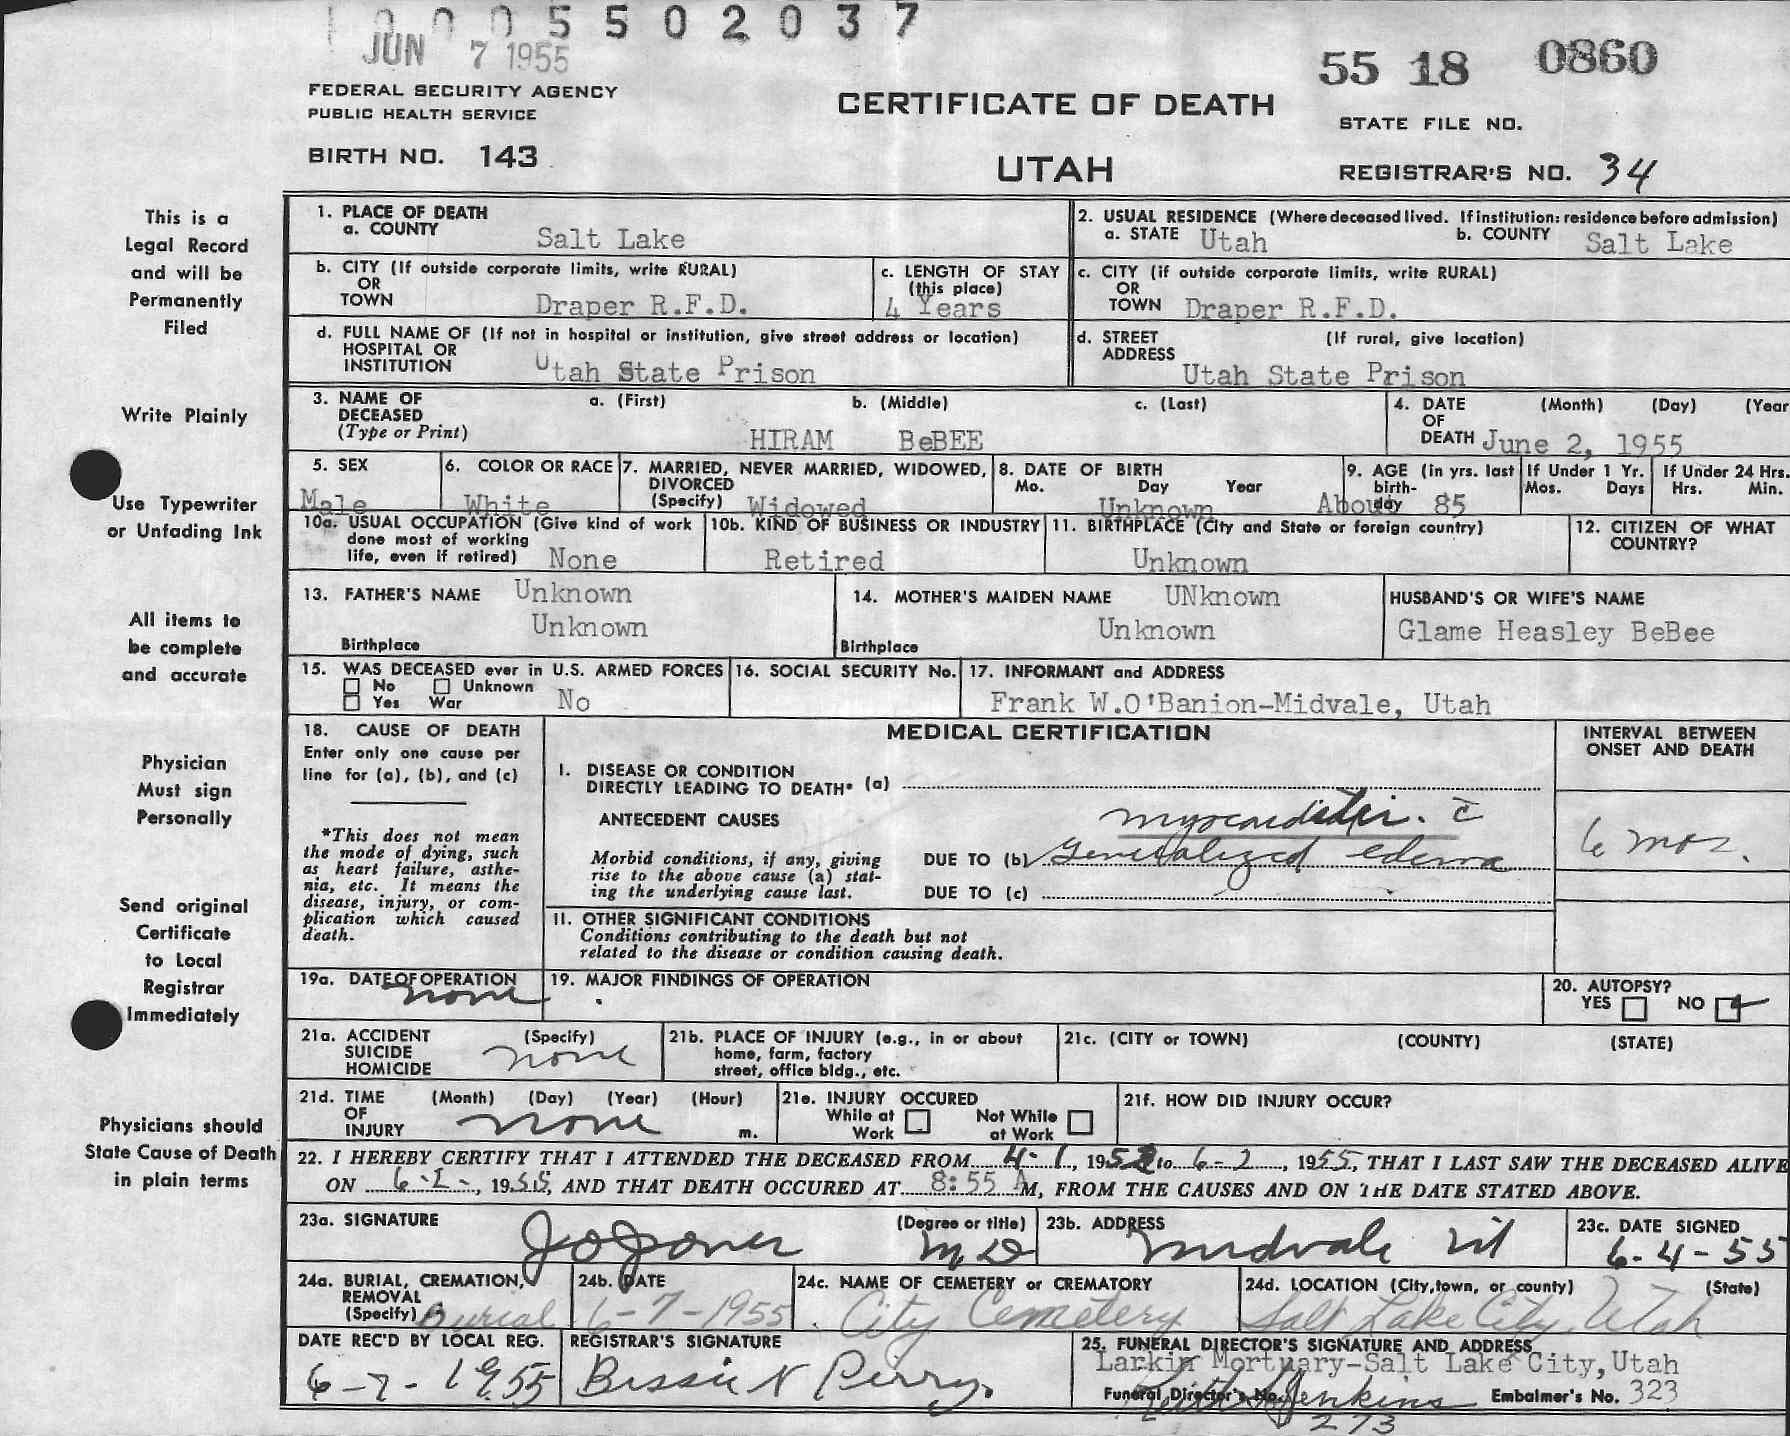 0 0 0 5 5 0 2 0 3 7
JUN 7 1955
55 18 0860
FEDERAL SECURITY AGENCY
PUBLIC HEALTH SERVICE
CERTIFICATE OF DEATH
STATE FILE NO.
BIRTH NO. 143
UTAH
REGISTRAR'S NO. 34
This is a
Legal Record
and will be
Permanently
Filed
Write Plainly
Use Typewriter
or Unfading Ink
All items to
be complete
and accurate
Physician
Must sign
Personally
Send original
Certificate
to Local
Registrar
Immediately
Physicians should
State Cause of Death
in plain terms
1. PLACE OF DEATH
a. COUNTY Salt Lake
2. USUAL RESIDENCE (Where deceased lived. If institution: residence before admission)
a. STATE Utah b. COUNTY Salt Lake
b. CITY (If outside corporate limits, write RURAL)
OR
TOWN Draper R.F.D.
c. LENGTH OF STAY
(this place)
4 Years
c. CITY (if outside corporate limits, write RURAL)
OR
TOWN Draper R.F.D.
d. FULL NAME OF (If not in hospital or institution, give street address or location)
HOSPITAL OR
INSTITUTION Utah State Prison
d. STREET (If rural, give location)
ADDRESS
Utah State Prison
3. NAME OF a. (First) b. (Middle) c. (Last)
DECEASED
(Type or Print) HIRAM BeBEE
4. DATE (Month) (Day) (Year
OF
DEATH June 2, 1955
5. SEX
Male
6. COLOR OR RACE
White
7. MARRIED, NEVER MARRIED, WIDOWED,
DIVORCED
(Specify) Widowed
8. DATE OF BIRTH
Mo. Day Year
Unknown
9. AGE (in yrs. last
birth-
day About 85
If Under 1 Yr.
Mos. Days
If Under 24 Hrs.
Hrs. Min.
10a. USUAL OCCUPATION (Give kind of work
done most of working
life, even if retired) None
10b. KIND OF BUSINESS OR INDUSTRY
Retired
11. BIRTHPLACE (City and State or foreign country)
Unknown
12. CITIZEN OF WHAT
COUNTRY?
13. FATHER'S NAME Unknown
Unknown
Birthplace
14. MOTHER'S MAIDEN NAME UNknown
Unknown
Birthplace
HUSBAND'S OR WIFE'S NAME
Glame Heasley BeBee
15. WAS DECEASED ever in U.S. ARMED FORCES
No Unknown
Yes War No
16. SOCIAL SECURITY No.
17. INFORMANT and ADDRESS
Frank W.O'Banion-Midvale, Utah
18. CAUSE OF DEATH
Enter only one cause per
line for (a), (b), and (c)
*This does not mean
the mode of dying, such
as heart failure, asthe-
nia, etc. It means the
disease, injury, or com-
plication which caused
death.
MEDICAL CERTIFICATION
INTERVAL BETWEEN
ONSET AND DEATH
I. DISEASE OR CONDITION
DIRECTLY LEADING TO DEATH* (a)
ANTECEDENT CAUSES
myocarditis. c̄
Morbid conditions, if any, giving
rise to the above cause (a) stat-
ing the underlying cause last.
DUE TO (b) Generalized edema
6 mos.
DUE TO (c)
II. OTHER SIGNIFICANT CONDITIONS
Conditions contributing to the death but not
related to the disease or condition causing death.
19a. DATE OF OPERATION
none
19. MAJOR FINDINGS OF OPERATION
20. AUTOPSY?
YES NO
21a. ACCIDENT (Specify)
SUICIDE
HOMICIDE none
21b. PLACE OF INJURY (e.g., in or about
home, farm, factory
street, office bldg., etc.
21c. (CITY or TOWN) (COUNTY) (STATE)
21d. TIME (Month) (Day) (Year) (Hour)
OF
INJURY none m.
21e. INJURY OCCURED
While at Not While
Work at Work
21f. HOW DID INJURY OCCUR?
22. I HEREBY CERTIFY THAT I ATTENDED THE DECEASED FROM 4-1, 1952 to 6-2, 1955, THAT I LAST SAW THE DECEASED ALIVE
ON 6-1-, 1955, AND THAT DEATH OCCURED AT 8:55 A M, FROM THE CAUSES AND ON THE DATE STATED ABOVE.
23a. SIGNATURE (Degree or title)
JO Jones M.D
23b. ADDRESS
Midvale Ut
23c. DATE SIGNED
6-4-55
24a. BURIAL, CREMATION,
REMOVAL
(Specify) Burial
24b. DATE
6-7-1955
24c. NAME OF CEMETERY or CREMATORY
City Cemetery
24d. LOCATION (City, town, or county) (State)
Salt Lake City, Utah
DATE REC'D BY LOCAL REG.
6-7-1955
REGISTRAR'S SIGNATURE
Bessie N Perry
25. FUNERAL DIRECTOR'S SIGNATURE AND ADDRESS
Larkin Mortuary-Salt Lake City, Utah
Funeral Director's No. Keith Jenkins Embalmer's No. 323
273